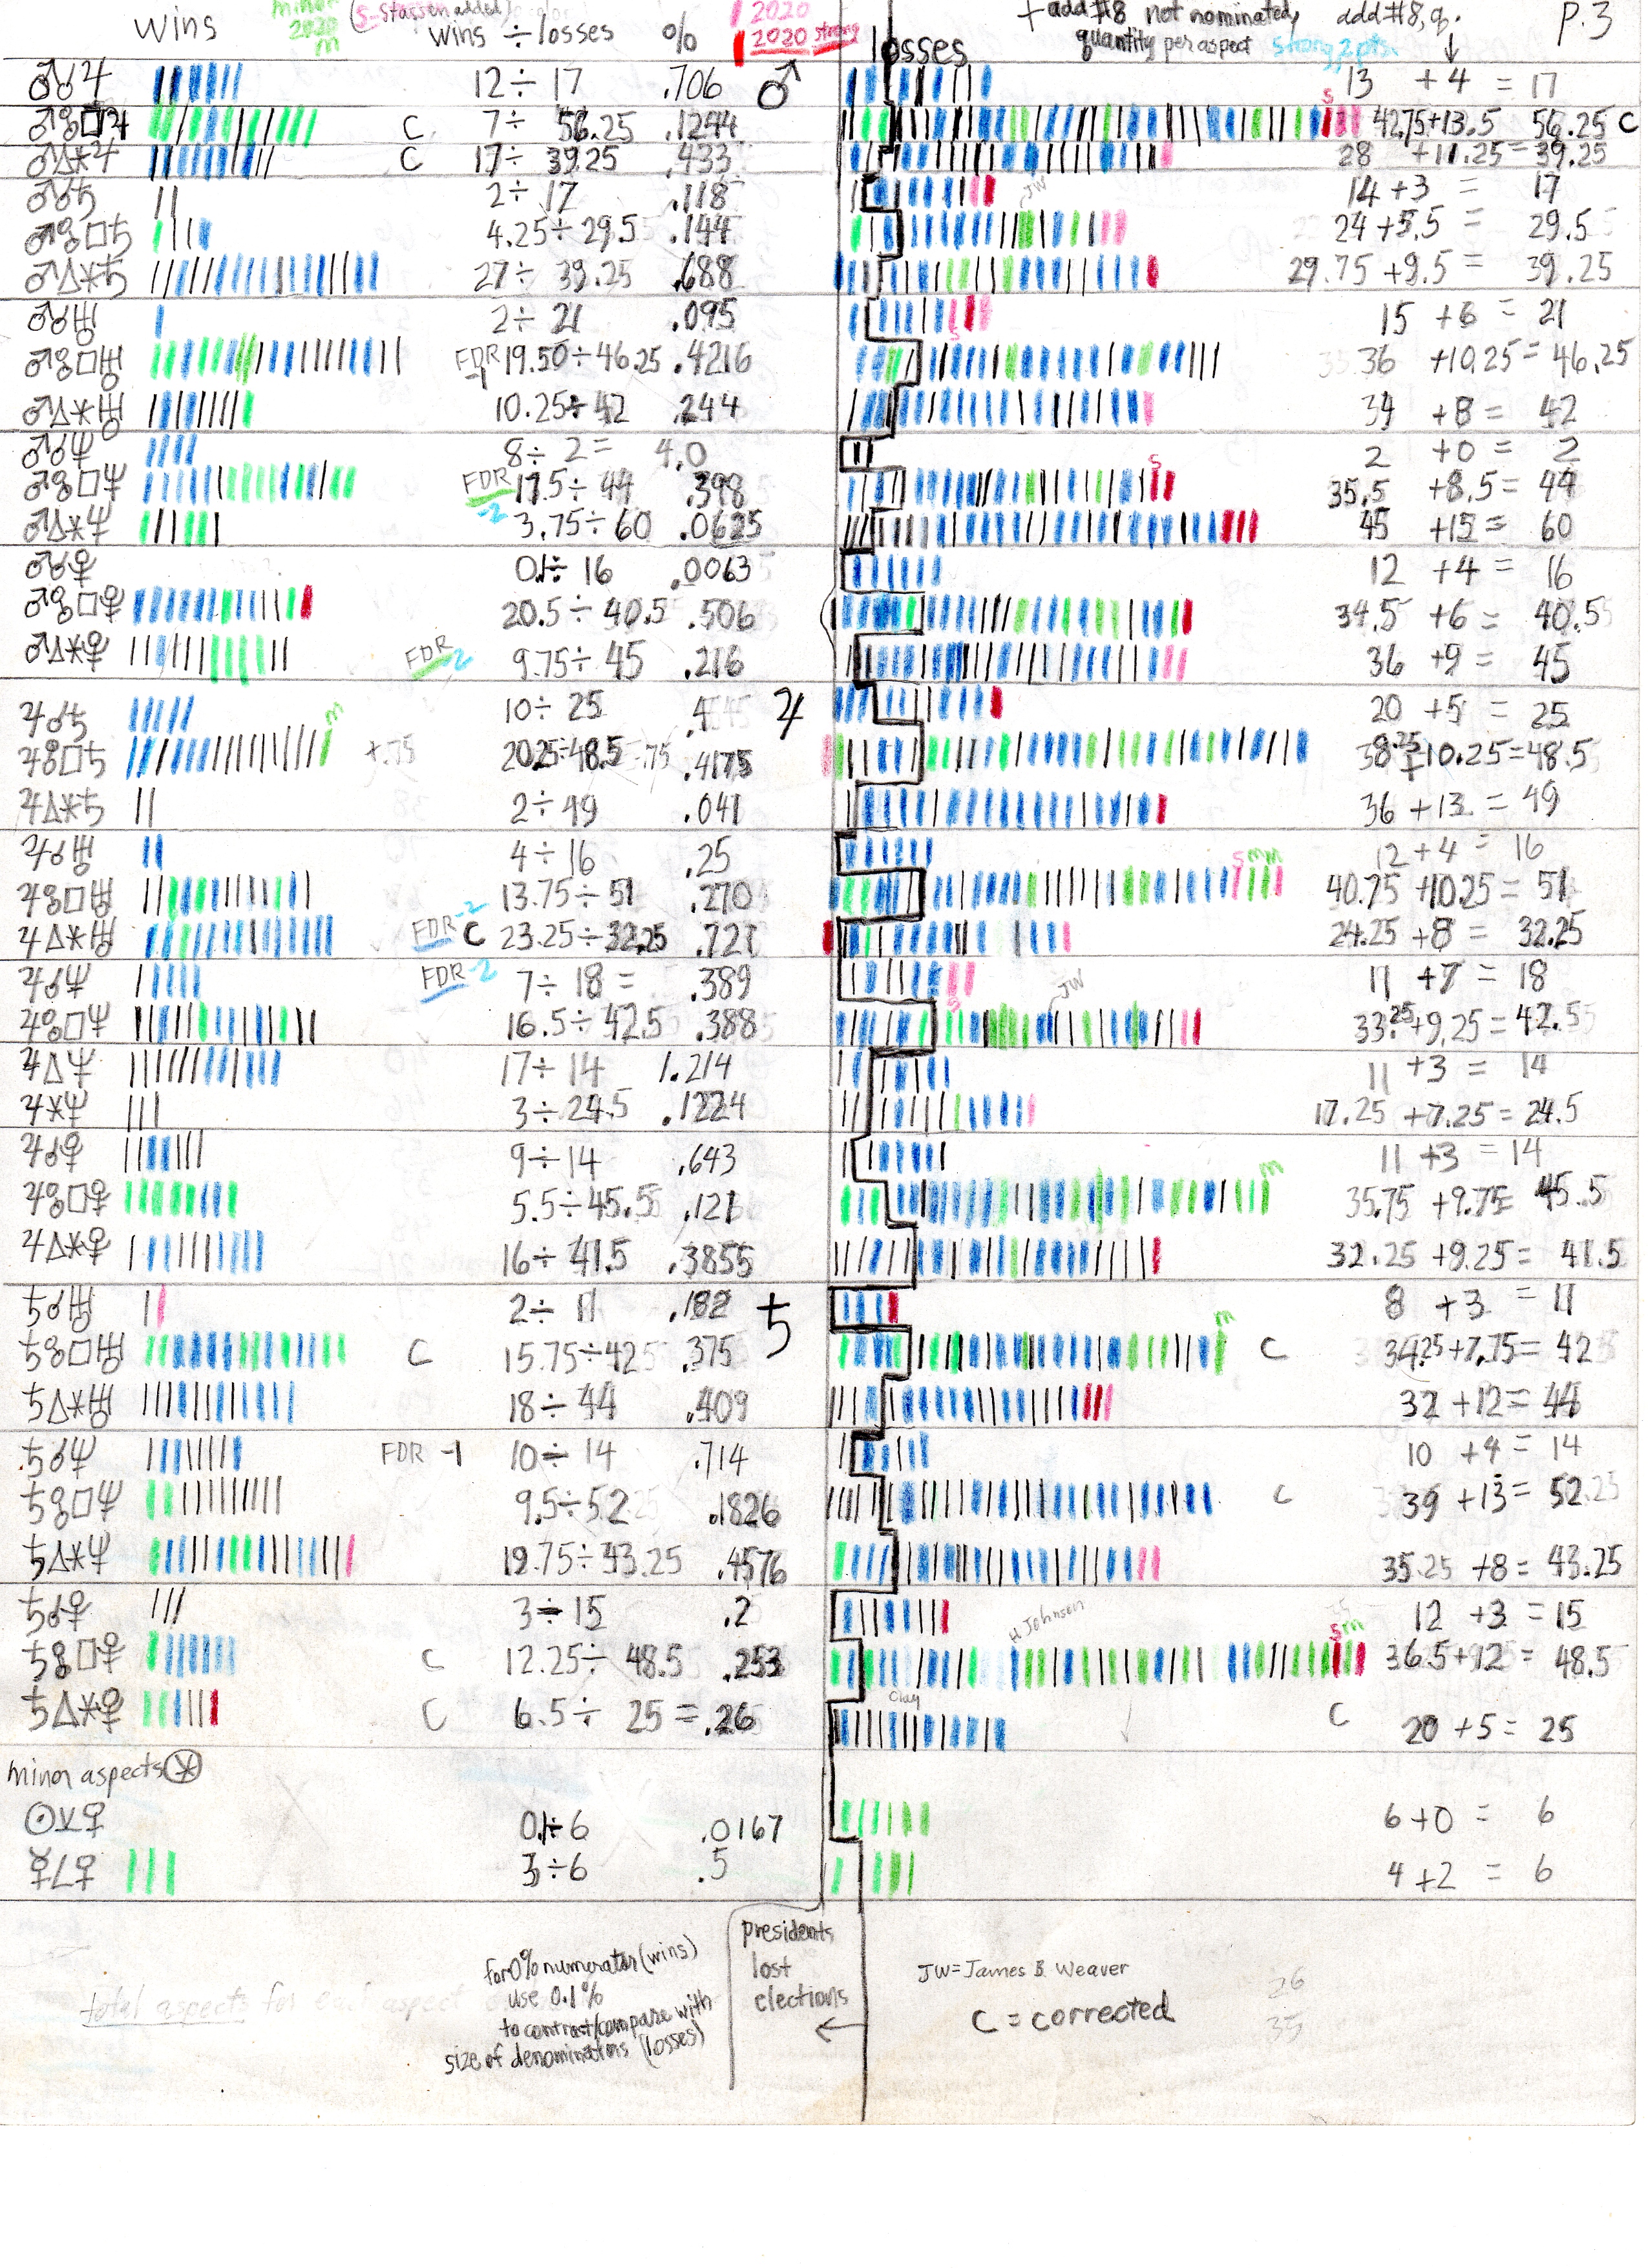 wins minor 2020 m (S = Stassen added) wins ÷ losses % 2020 2020 strong losses + add #8 not nominated, quantity per aspect strong, 2 pts. add #8, q. ↓ P.3
♂☌♃ 12 ÷ 17 .706 ♂ 13 + 4 = 17
♂☍□♃ C 7 ÷ 56.25 .1244 S 42.75 + 13.5 56.25 C
♂△⚹♃ C 17 ÷ 39.25 .433 28 + 11.25 = 39.25
♂☌♄ 2 ÷ 17 .118 JW 14 + 3 = 17
♂☍□♄ 4.25 ÷ 29.5 .144 24 + 5.5 = 29.5
♂△⚹♄ 27 ÷ 39.25 .688 29.75 + 9.5 = 39.25
♂☌♅ 2 ÷ 21 .095 S 15 + 6 = 21
♂☍□♅ FDR -1 19.50 ÷ 46.25 .4216 36 + 10.25 = 46.25
♂△⚹♅ 10.25 ÷ 42 .244 34 + 8 = 42
♂☌♆ 8 ÷ 2 = 4.0 2 + 0 = 2
♂☍□♆ FDR -2 17.5 ÷ 44 .398 S 35.5 + 8.5 = 44
♂△⚹♆ 3.75 ÷ 60 .0625 45 + 15 = 60
♂☌♀ 0.1 ÷ 16 .0063 12 + 4 = 16
♂☍□♀ 20.5 ÷ 40.5 .506 34.5 + 6 = 40.5
♂△⚹♀ FDR -2 9.75 ÷ 45 .216 36 + 9 = 45
♃☌♄ 10 ÷ 25 .4 ♃ 20 + 5 = 25
♃☍□♄ m +.75 20.25 ÷ 48.5 .4175 38.25 + 10.25 = 48.5
♃△⚹♄ 2 ÷ 49 .041 36 + 13 = 49
♃☌♅ 4 ÷ 16 .25 12 + 4 = 16
♃☍□♅ 13.75 ÷ 51 .270 S m m 40.75 + 10.25 = 51
♃△⚹♅ FDR -2 C 23.25 ÷ 32.25 .721 24.25 + 8 = 32.25
♃☌♆ FDR -2 7 ÷ 18 = .389 S JW 11 + 7 = 18
♃☍□♆ 16.5 ÷ 42.5 .388 33.25 + 9.25 = 42.5
♃△♆ 17 ÷ 14 1.214 11 + 3 = 14
♃⚹♆ 3 ÷ 24.5 .1224 17.25 + 7.25 = 24.5
♃☌♀ 9 ÷ 14 .643 11 + 3 = 14
♃☍□♀ 5.5 ÷ 45.5 .121 m 35.75 + 9.75 = 45.5
♃△⚹♀ 16 ÷ 41.5 .3855 32.25 + 9.25 = 41.5
♄☌♅ 2 ÷ 11 .182 ♄ 8 + 3 = 11
♄☍□♅ C 15.75 ÷ 42 .375 m C 34.25 + 7.75 = 42
♄△⚹♅ 18 ÷ 44 .409 32 + 12 = 44
♄☌♆ FDR -1 10 ÷ 14 .714 10 + 4 = 14
♄☍□♆ 9.5 ÷ 52 .1826 C 39 + 13 = 52
♄△⚹♆ 19.75 ÷ 43.25 .4576 35.25 + 8 = 43.25
♄☌♀ 3 ÷ 15 .2 H Johnson 12 + 3 = 15
♄☍□♀ C 12.25 ÷ 48.5 .253 S m 36.5 + 12 = 48.5
♄△⚹♀ C 6.5 ÷ 25 = .26 Clay C 20 + 5 = 25
minor aspects ⚹
☉⚺♀ 0.1 ÷ 6 .0167 6 + 0 = 6
☿∠♀ 3 ÷ 6 .5 4 + 2 = 6
total aspects for each aspect
for 0% numerator (wins)
use 0.1%
to contrast/compare with
size of denominators (losses)
presidents
lost
elections
←
JW = James B. Weaver
C = corrected
26
35